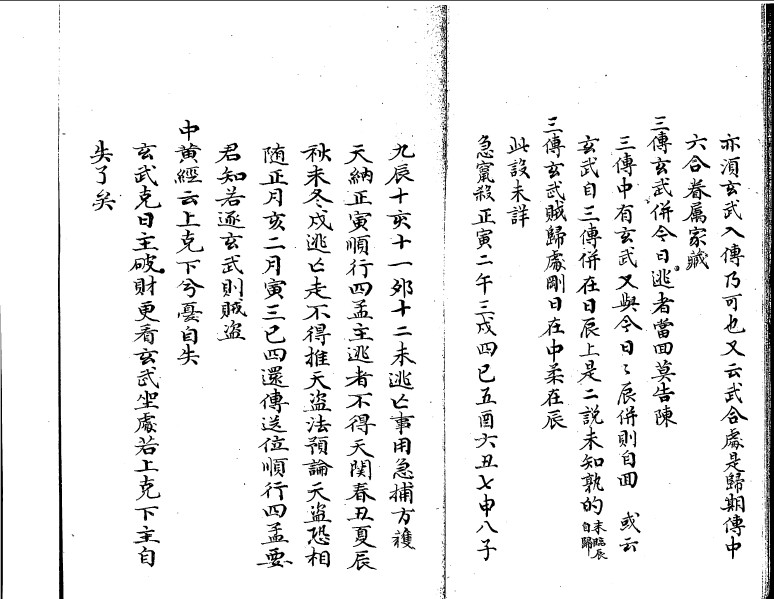 亦須玄武入傳乃可也又云武合處是歸期傳中
六合眷屬家藏
三傳玄武併今日逃者當面莫告陳
三傳中有玄武又與今日々辰併則自回 或云
玄武自三傳併在日辰上是二説未知孰的末臨辰自歸
三傳玄武賊歸處剛日在中柔在辰
此設未詳
急竄殺正寅二午三戌四巳五酉六丑七申八子
九辰十亥十一卯十二未逃亡事用急捕方獲
天納正寅順行四孟主逃者不得天関春丑夏辰
秋未冬戌逃亡走不得推天盗法預論天盗恐相
随正月亥二月寅三巳四還傳送位順行四孟要
君知若逐玄武則賊盗
中黄經云上克下兮憂自失
玄武克日主破財更看玄武坐處若上克下主自
失了矣